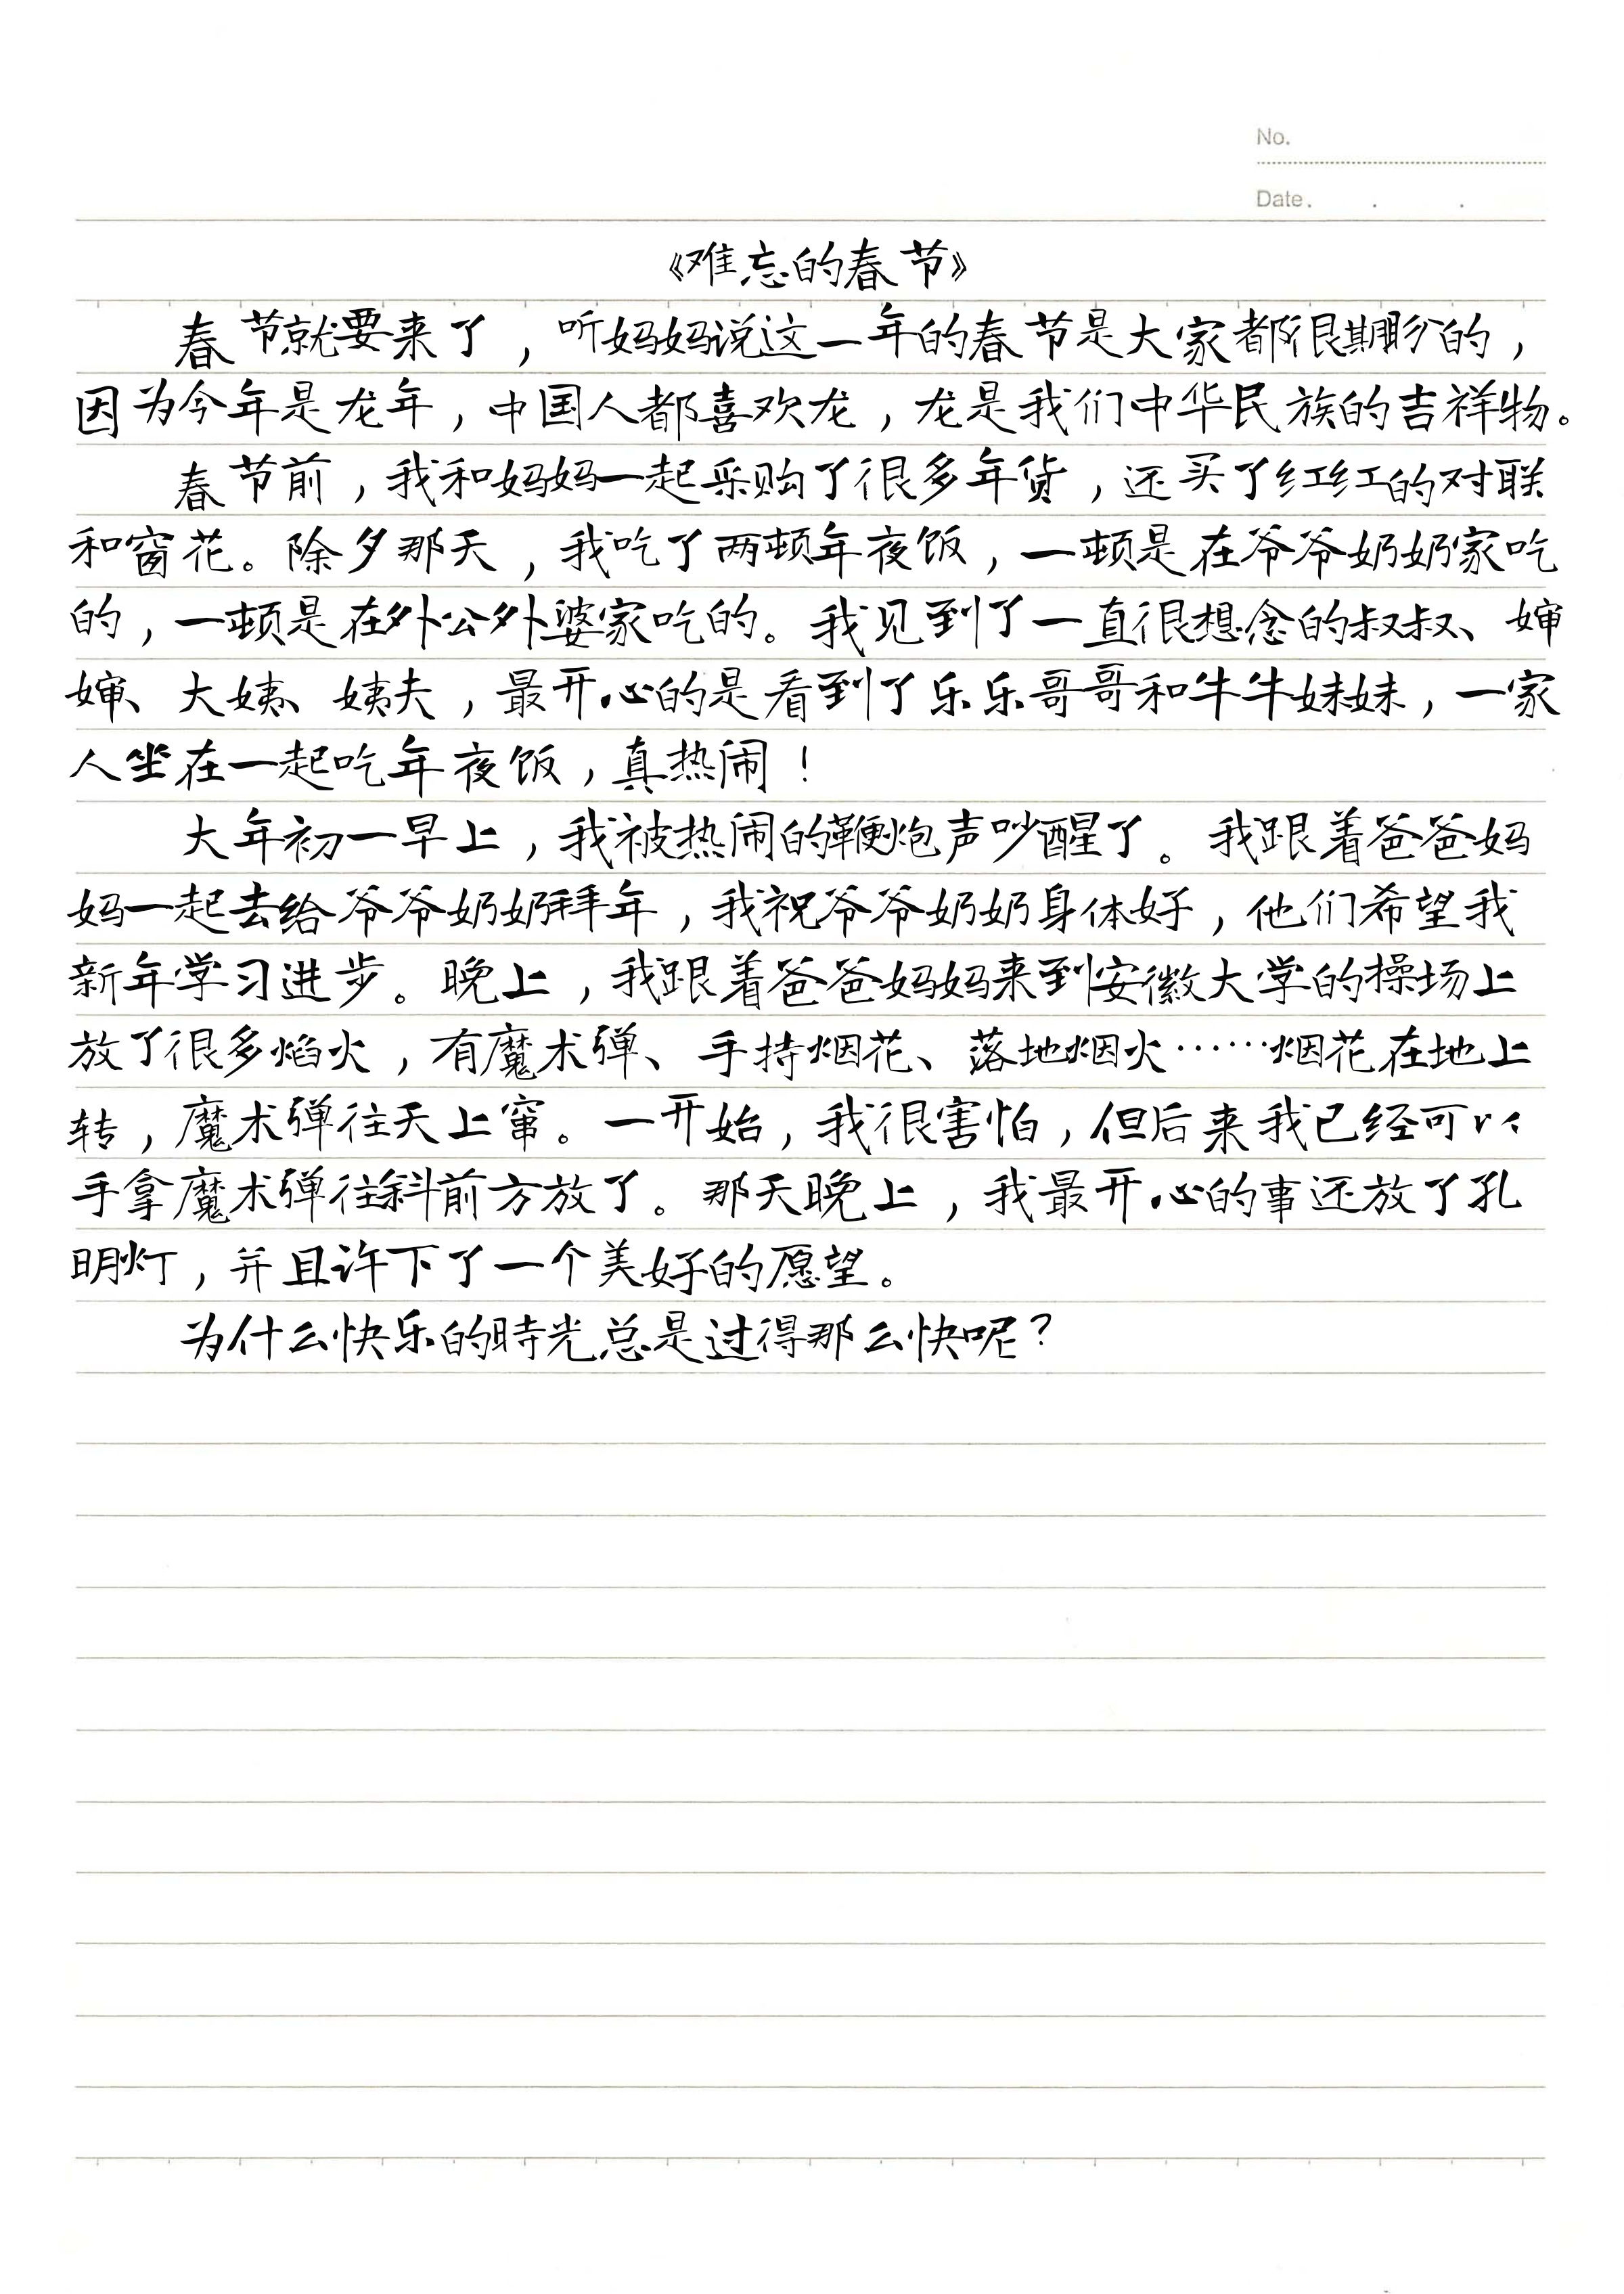 No.
Date. . .
《难忘的春节》
春节就要来了，听妈妈说这一年的春节是大家都很期盼的，
因为今年是龙年，中国人都喜欢龙，龙是我们中华民族的吉祥物。
春节前，我和妈妈一起采购了很多年货，还买了红红的对联
和窗花。除夕那天，我吃了两顿年夜饭，一顿是在爷爷奶奶家吃
的，一顿是在外公外婆家吃的。我见到了一直很想念的叔叔、婶
婶、大姨、姨夫，最开心的是看到了乐乐哥哥和牛牛妹妹，一家
人坐在一起吃年夜饭，真热闹！
大年初一早上，我被热闹的鞭炮声吵醒了。我跟着爸爸妈
妈一起去给爷爷奶奶拜年，我祝爷爷奶奶身体好，他们希望我
新年学习进步。晚上，我跟着爸爸妈妈来到安徽大学的操场上
放了很多焰火，有魔术弹、手持烟花、落地烟火……烟花在地上
转，魔术弹往天上窜。一开始，我很害怕，但后来我已经可以
手拿魔术弹往斜前方放了。那天晚上，我最开心的事还放了孔
明灯，并且许下了一个美好的愿望。
为什么快乐的時光总是过得那么快呢？